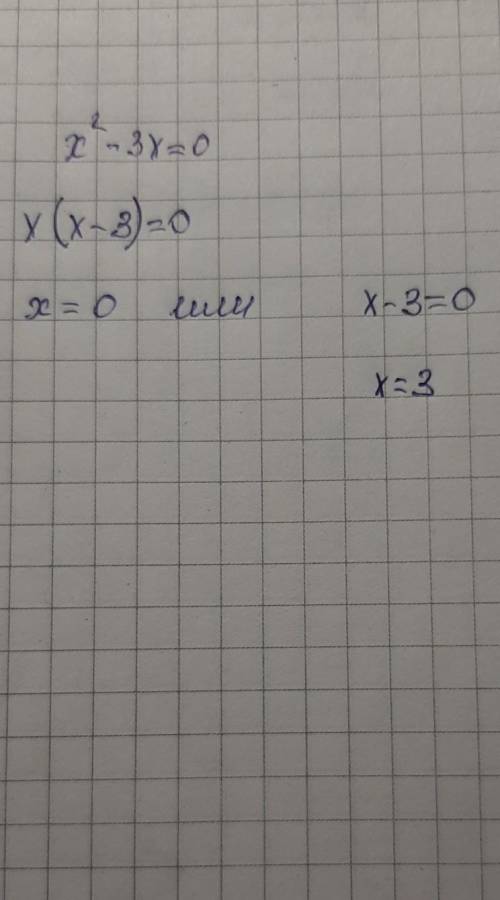 x² - 3x = 0
x(x - 3) = 0
x = 0 или x - 3 = 0
x = 3